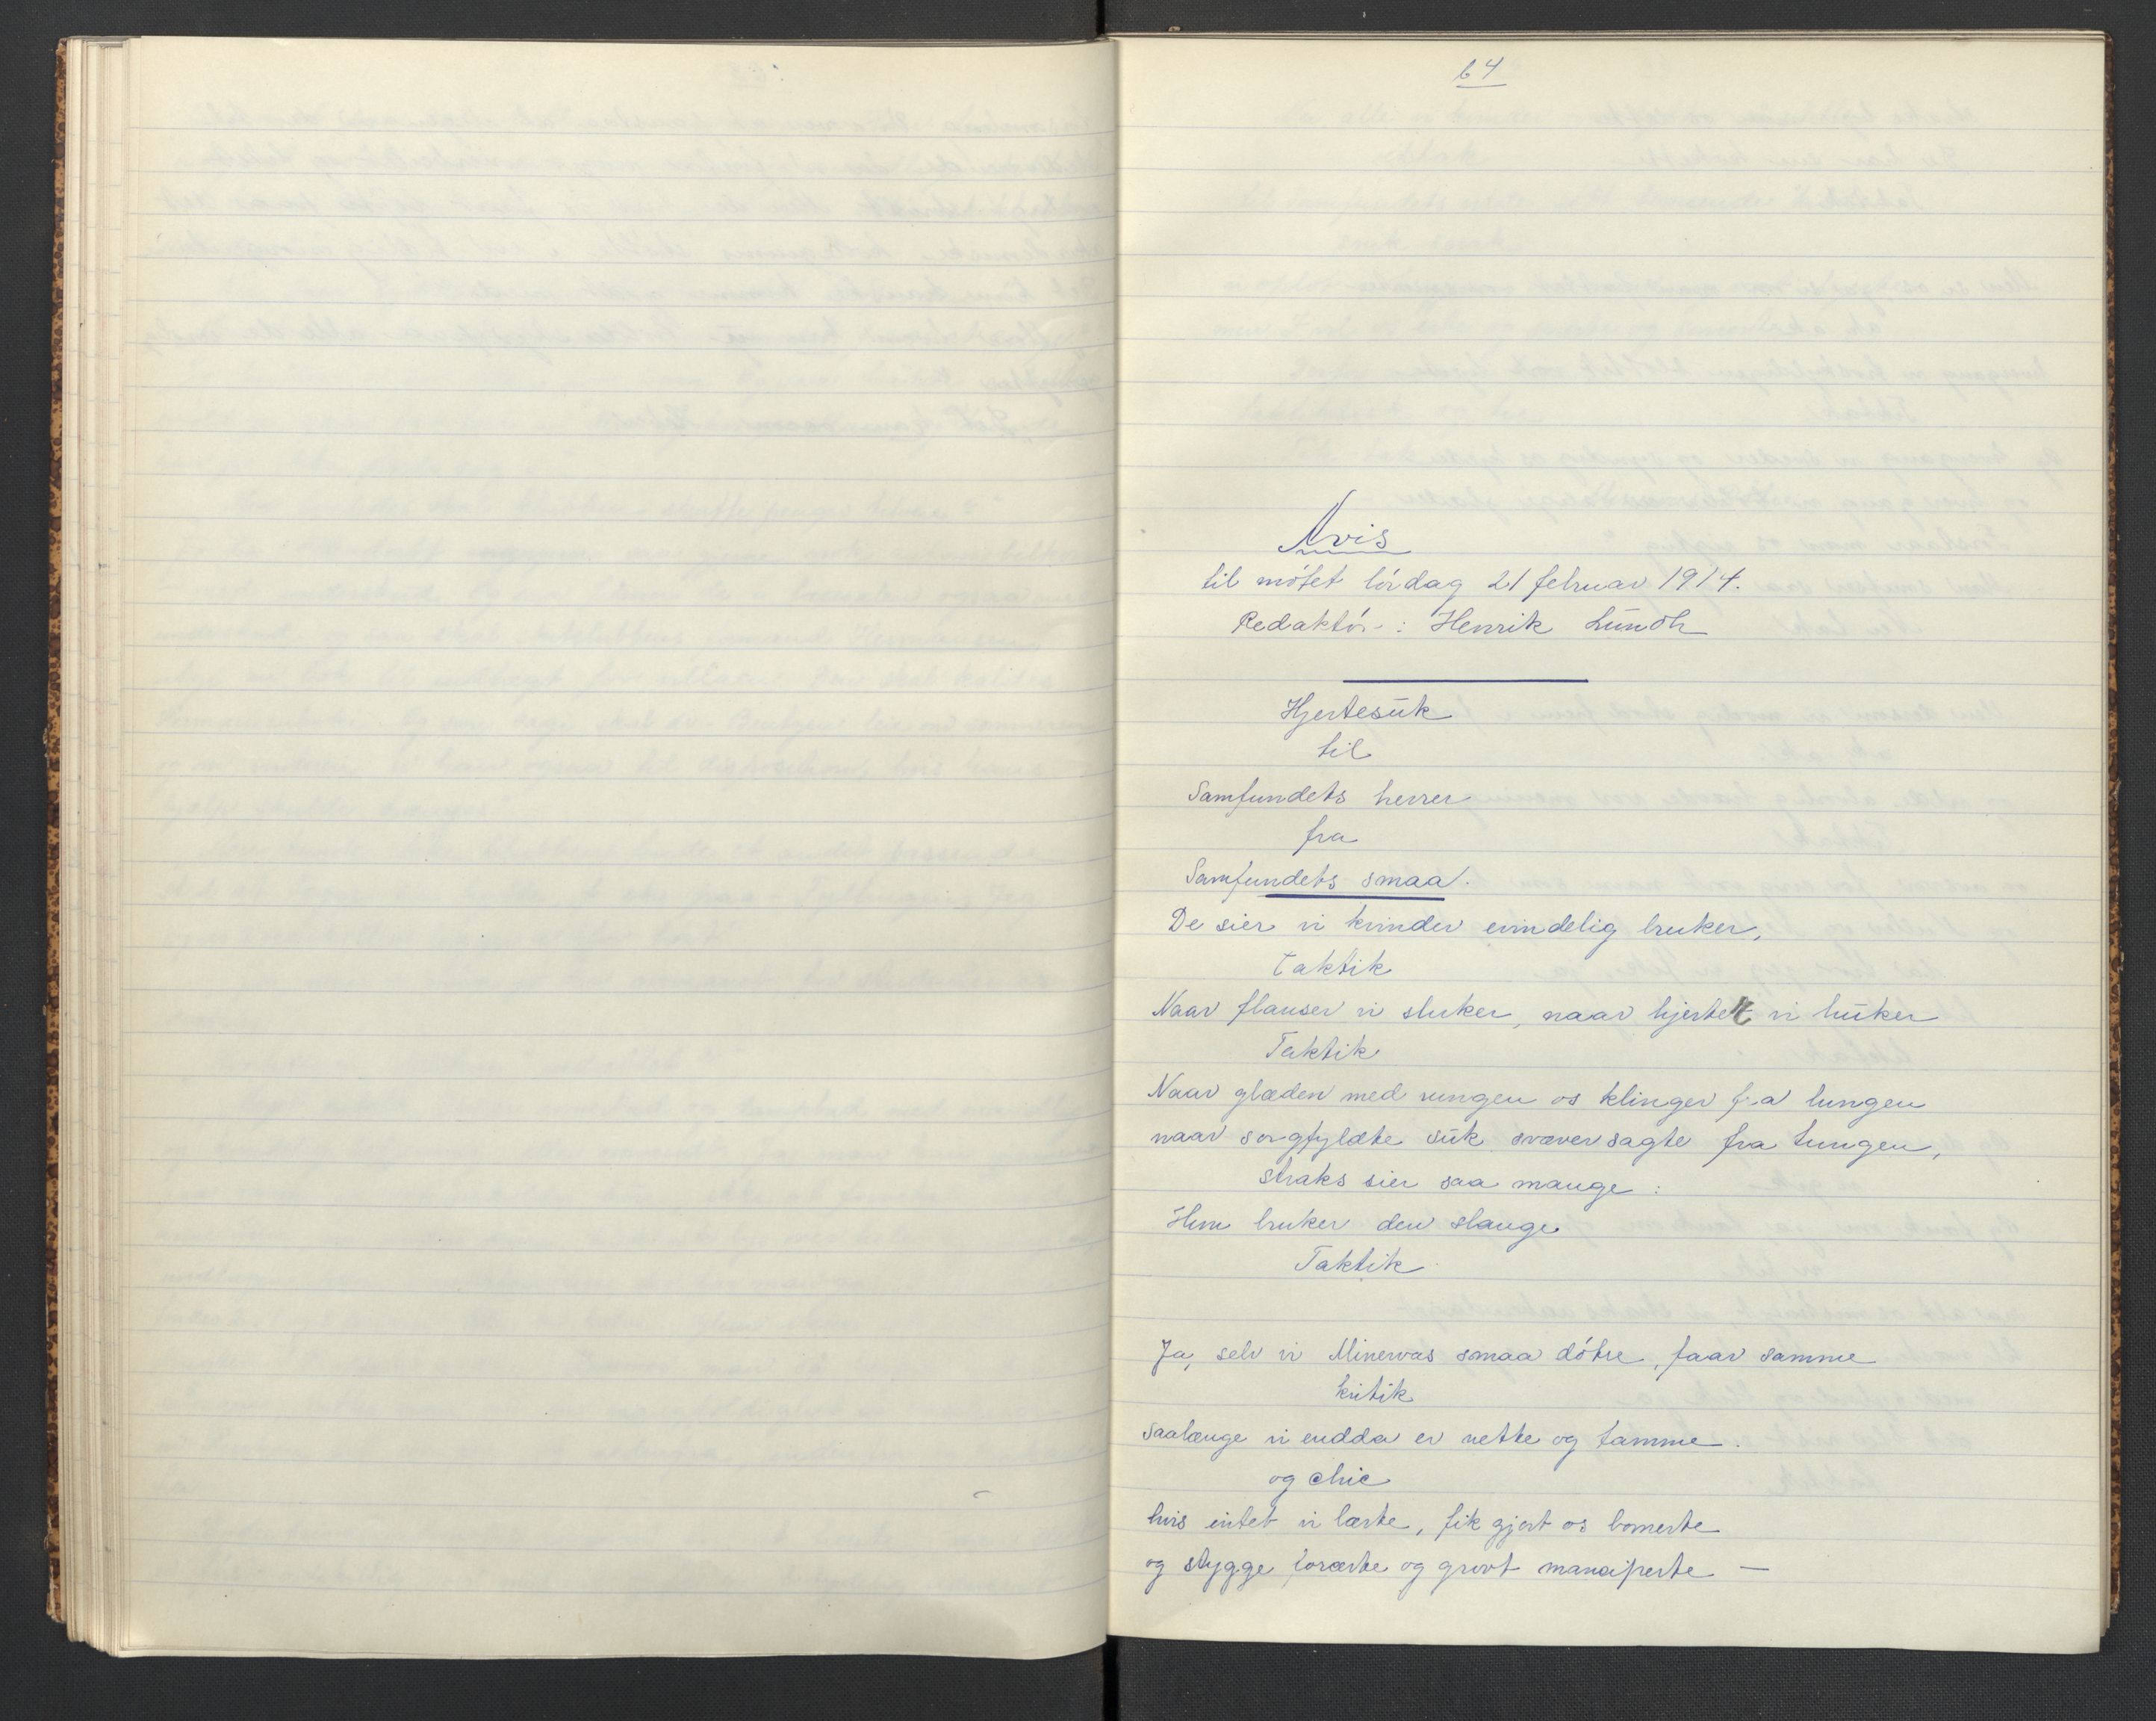 64
Avis
til møtet lørdag 21 februar 1914.
Redaktør: Henrik Lundh
Hjertesuk
til
Samfundets herrer
fra
Samfundets smaa.
De sier vi kvinder evindelig bruker,
Taktik
Naar flauser vi sluker, naar hjertet vi luker
Taktik
Naar glæden med rungen os klinger fra lungen
naar sorgfyldte suk svæver sagte fra tungen,
straks sier saa mange:
Hun bruker den slange
Taktik
Ja, selv vi Minervas smaa døtre, faar samme
kritik
saalænge vi endda er nette og tamme.
og chic
hvis intet vi lærte, fik gjort os bornerte
og stygge og grovt manciperte —